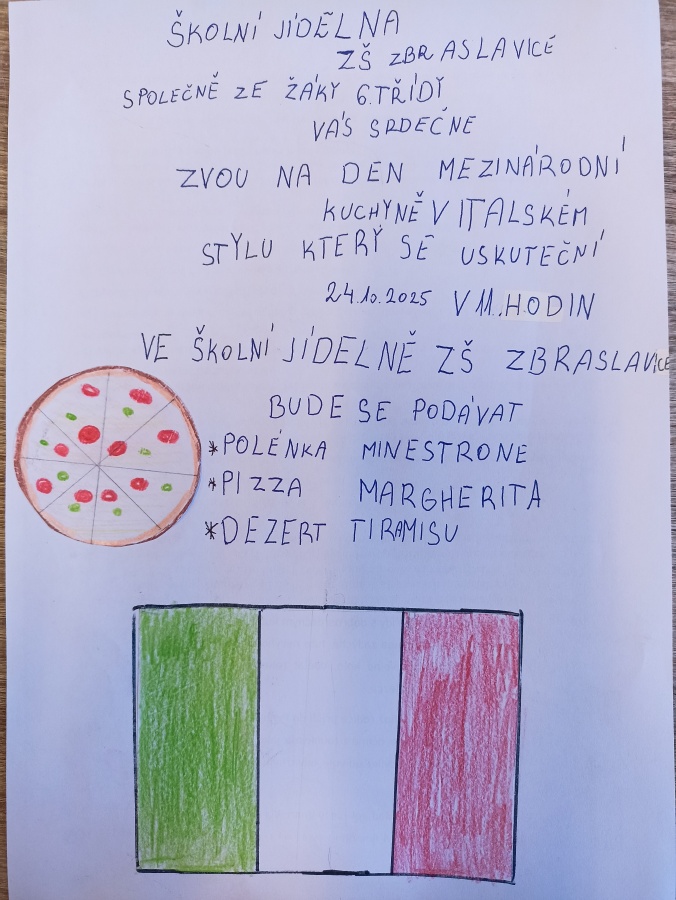 ŠKOLNÍ JÍDELNA
ZŠ ZBRASLAVICE
SPOLEČNĚ ZE ŽÁKY 6.TŘÍDY
VÁS SRDEČNE
ZVOU NA DEN MEZINÁRODNÍ
KUCHYNĚ V ITALSKÉM
STYLU KTERÝ SE USKUTEČNÍ
24.10.2025 V 11.HODIN
VE ŠKOLNÍ JÍDELNĚ ZŠ ZBRASLAVICE
BUDE SE PODÁVAT
*POLÉNKA MINESTRONE
*PIZZA MARGHERITA
*DEZERT TIRAMISU